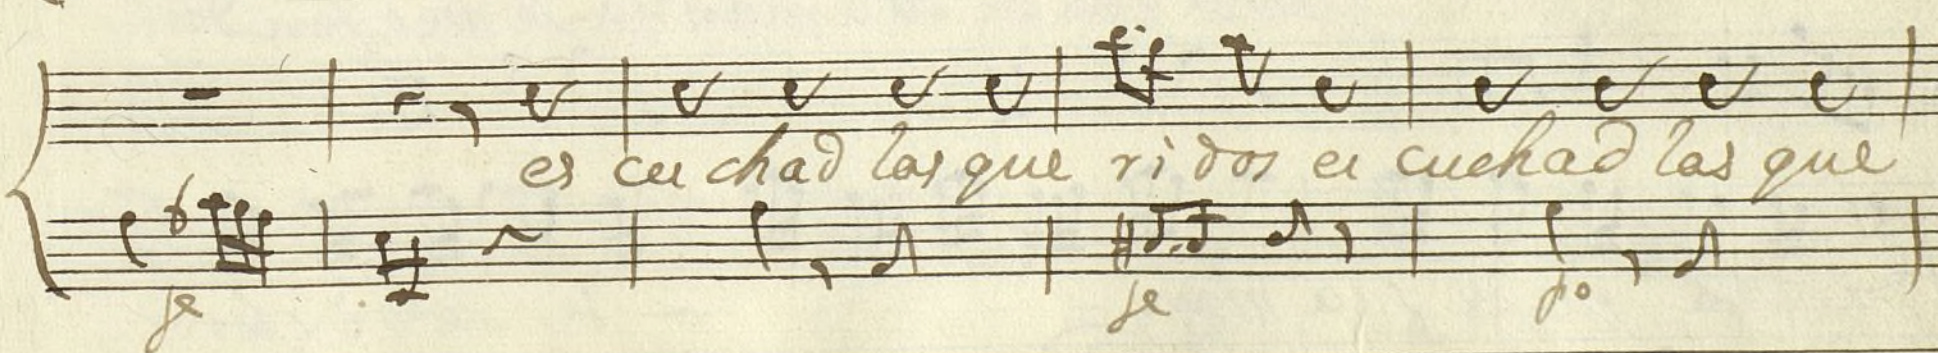 es cu chad las que ri dos es cuchad las que
fe fe po